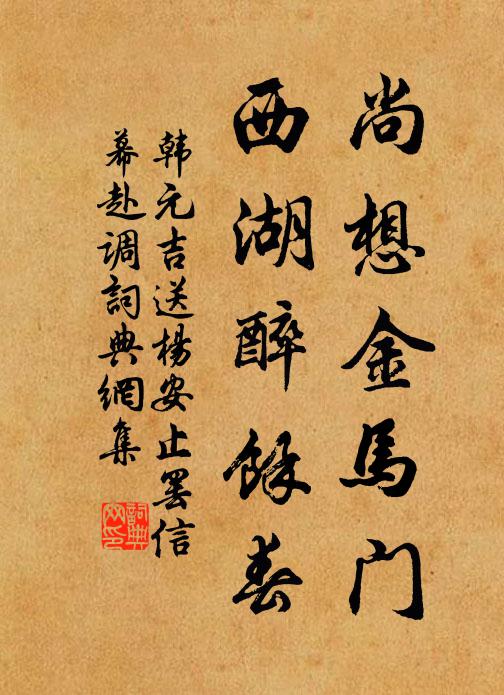 尚想金馬门
西湖醉餘春
韩元吉送杨安止罢信
幕赴调詞典網集
詞典网印